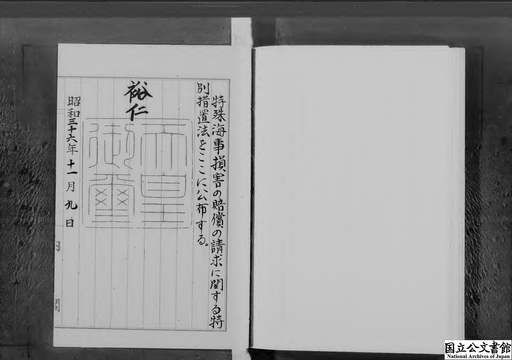 特殊海事損害の賠償の請求に関する特
別措置法をここに公布する。
裕仁
天皇
御璽
昭和三十六年十一月九日
国立公文書館
National Archives of Japan